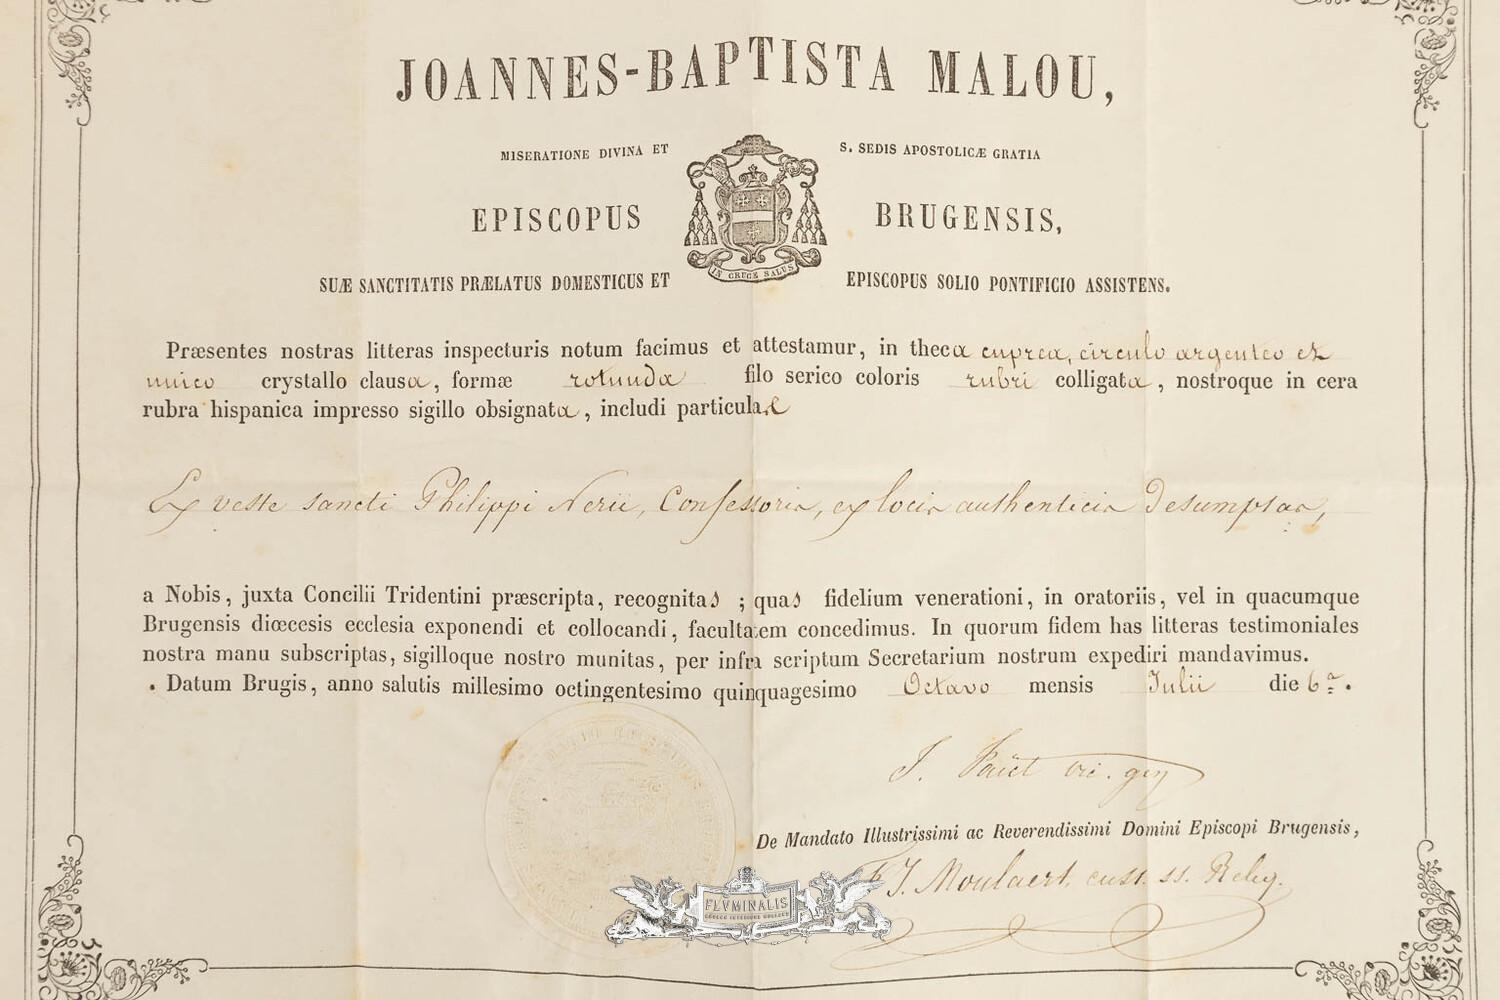 JOANNES-BAPTISTA MALOU,
MISERATIONE DIVINA ET S. SEDIS APOSTOLICÆ GRATIA
EPISCOPUS BRUGENSIS,
IN CRUCE SALUS
SUÆ SANCTITATIS PRÆLATUS DOMESTICUS ET EPISCOPUS SOLIO PONTIFICIO ASSISTENS.
Præsentes nostras litteras inspecturis notum facimus et attestamur, in theca cuprea, circulo argenteo et
unico crystallo clausa, formæ rotunda filo serico coloris rubri colligata, nostroque in cera
rubra hispanica impresso sigillo obsignata, includi particulas
Ex veste sancti Philippi Nerii, Confessoris, ex locis authenticis desumptas,
a Nobis, juxta Concilii Tridentini præscripta, recognitas ; quas fidelium venerationi, in oratoriis, vel in quacumque
Brugensis diœcesis ecclesia exponendi et collocandi, facultatem concedimus. In quorum fidem has litteras testimoniales
nostra manu subscriptas, sigilloque nostro munitas, per infra scriptum Secretarium nostrum expediri mandavimus.
Datum Brugis, anno salutis millesimo octingentesimo quinquagesimo Octavo mensis Julii die 6ª.
J. Faict vic. gen
De Mandato Illustrissimi ac Reverendissimi Domini Episcopi Brugensis,
J. Moulaert cust. ss. Reliq.
FLVMINALIS